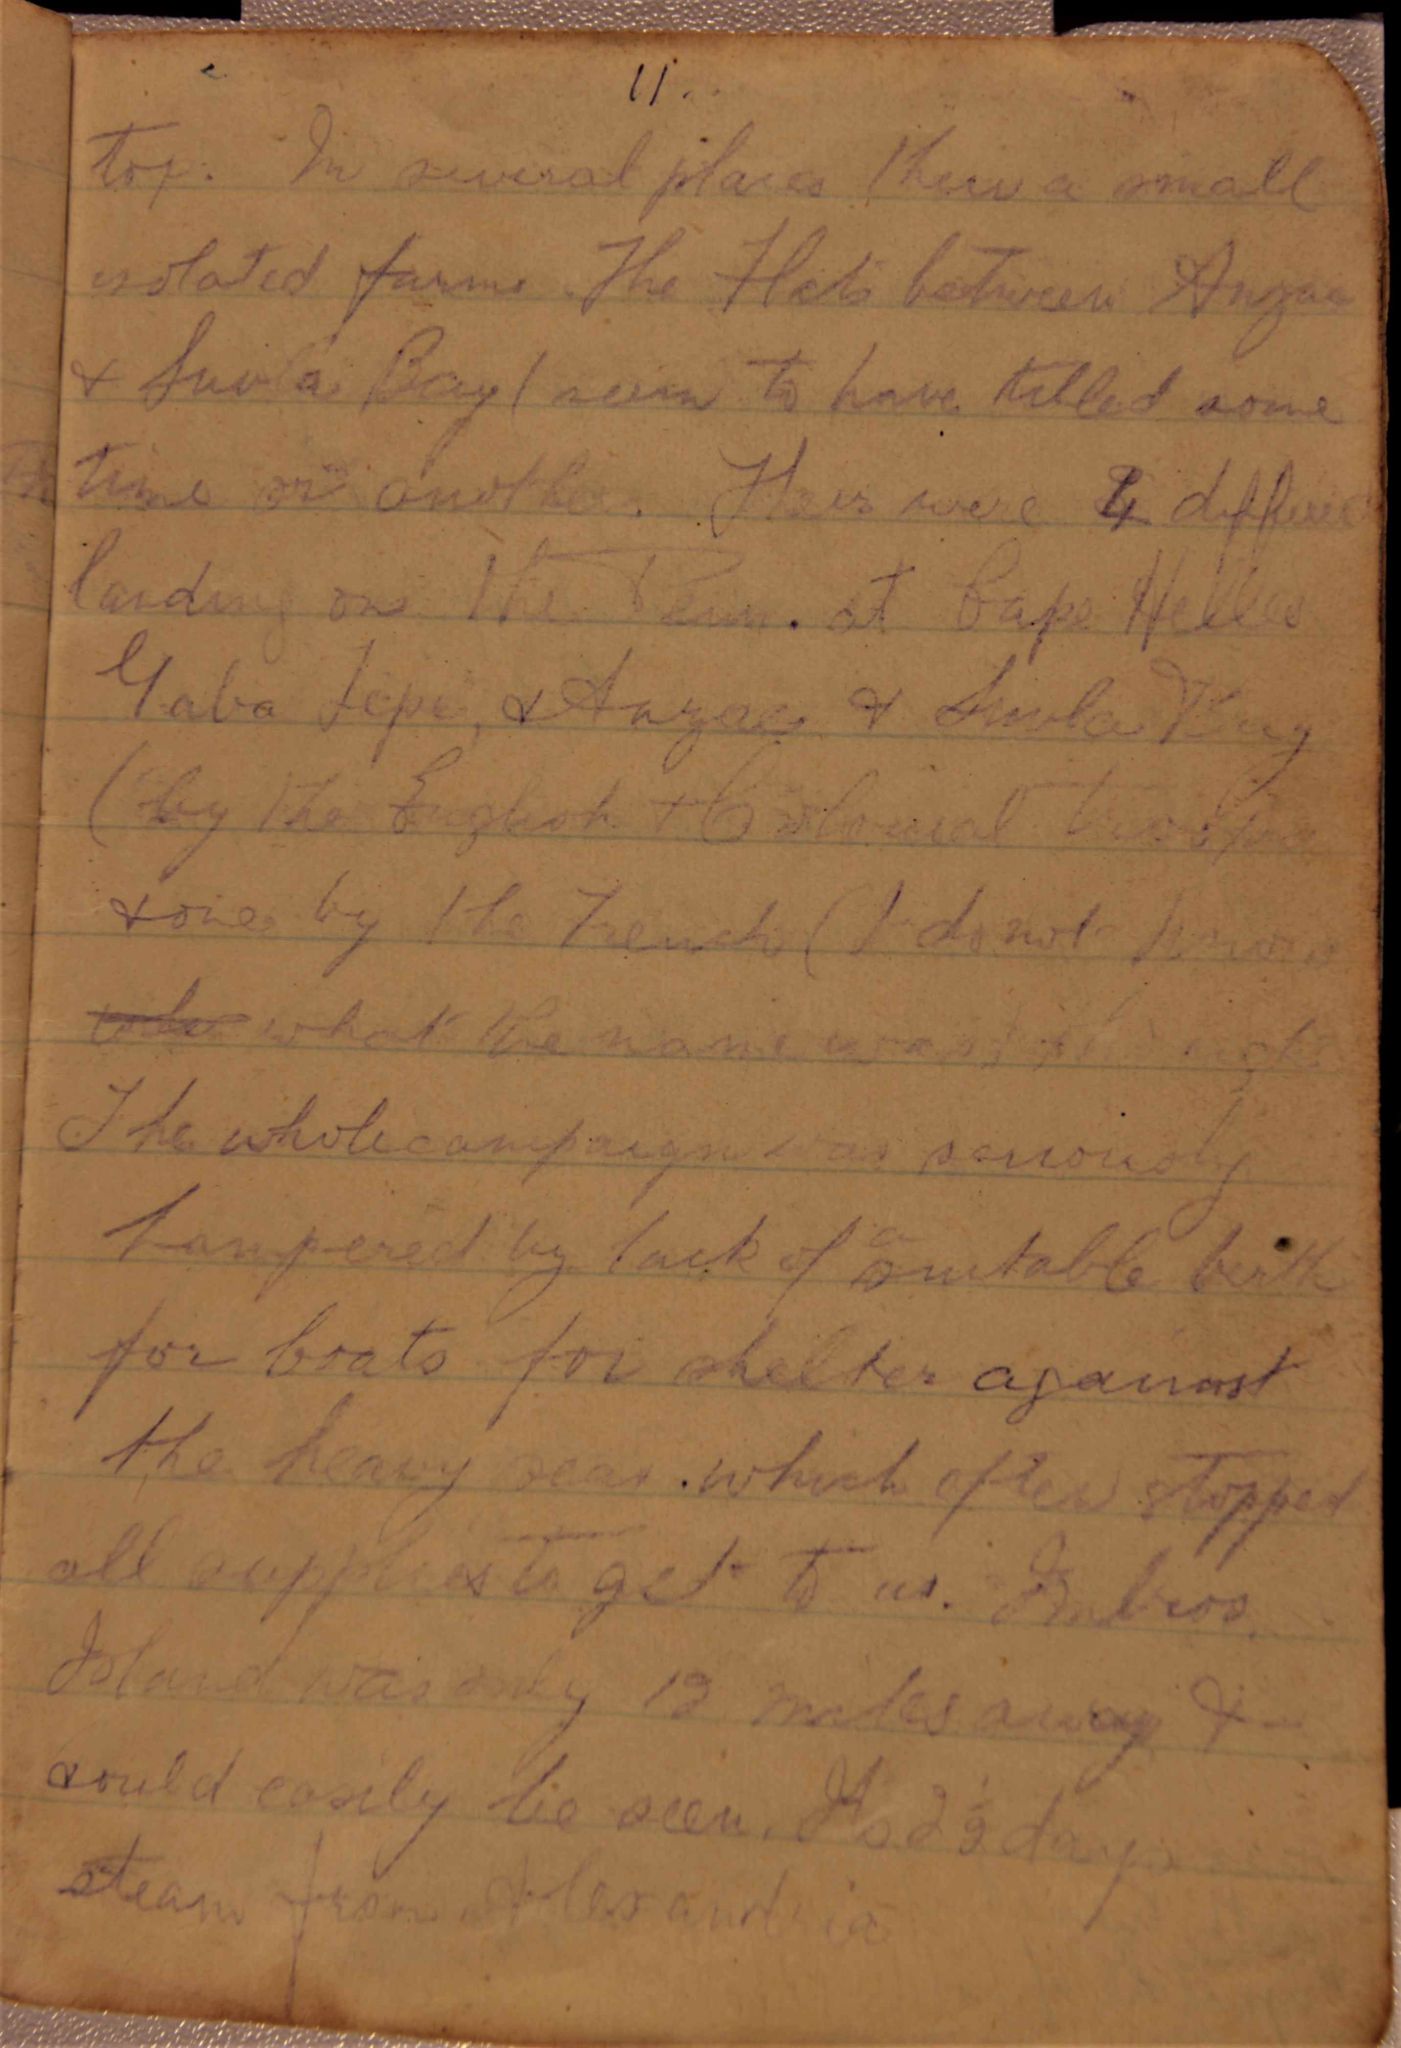 11.
top. In several places there a small
isolated farms. The Flats between Anzac
& Suvla Bay seem to have tilled some
time or another. There were 4 different
landing on the Penin. at Cape Helles
Gaba Tepe, & Anzac & Suvla Bay
(by the English & Colonial troops
& one by the French (I do not know
what the name was
The whole campaign was seriously
hampered by lack of a suitable birth
for boats for shelter against
the heavy seas. which often stopped
all supplies to get to us. Imbros
Island was only 12 miles away &
could easily be seen. Its 2½ days
steam from Alexandria